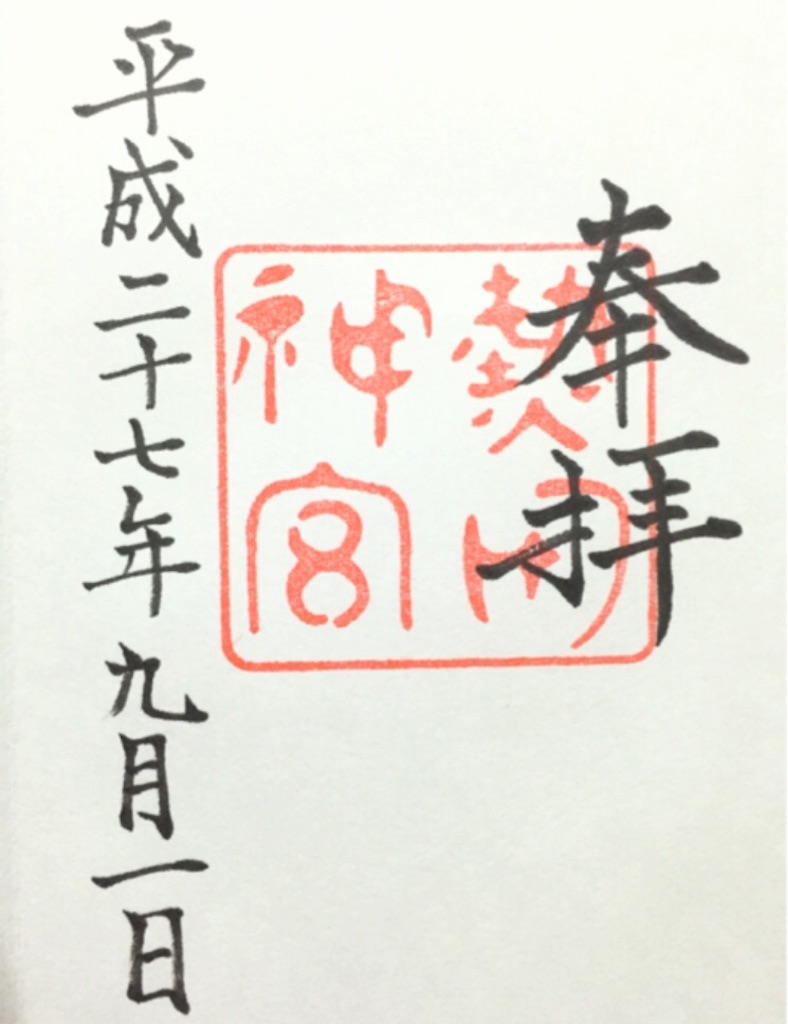 奉拝
熱田
神宮
平成二十七年九月一日